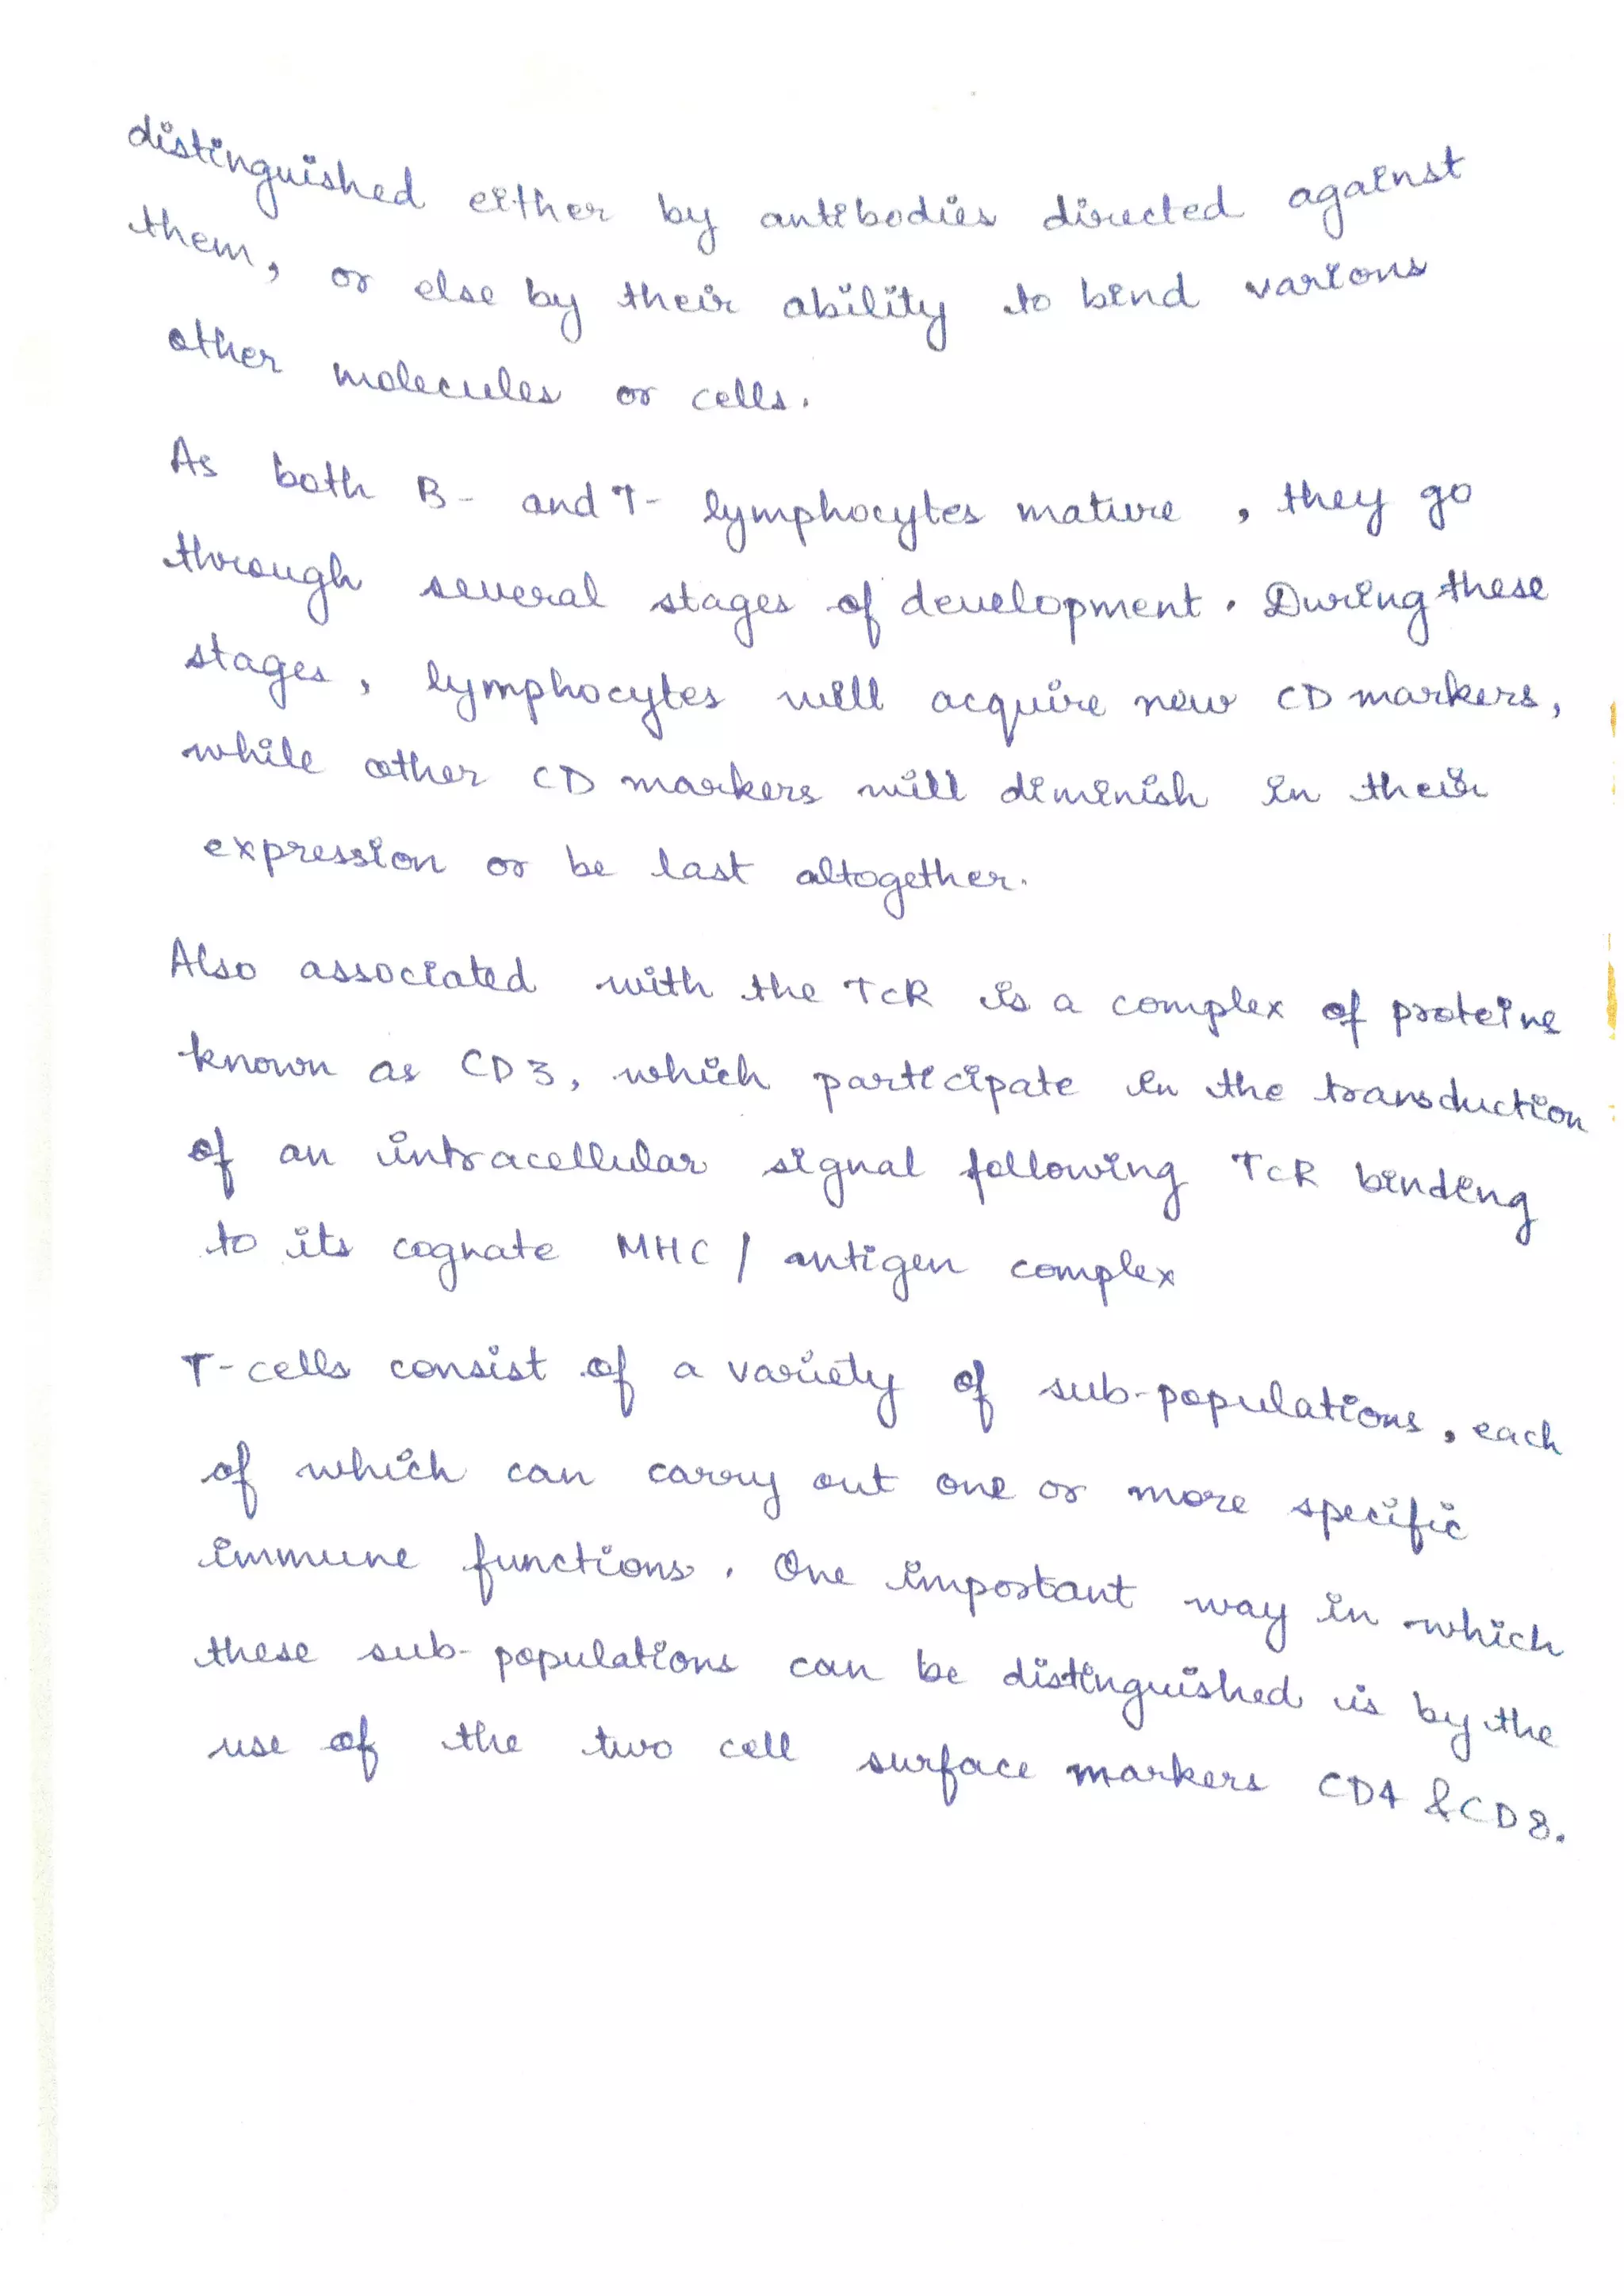 distinguished either by antibodies directed against
them, or else by their ability to bind various
other molecules or cells.
As both B- and T- lymphocytes mature, they go
through several stages of development. During these
stages, lymphocytes will acquire new CD markers,
while other CD markers will diminish in their
expression or be last altogether.
Also associated with the TCR is a complex of proteins
known as CD3, which participate in the transduction
of an intracellular signal following TCR binding
to its cognate MHC / antigen complex
T-cells consist of a variety of sub-populations, each
of which can carry out one or more specific
immune functions. One important way in which
these sub-populations can be distinguished is by the
use of the two cell surface markers CD4 & CD8.